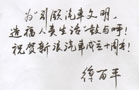 为引领汽车文明，
造福人类生活鼓与呼！
祝贺新浪汽车成立十周年！
徐百平